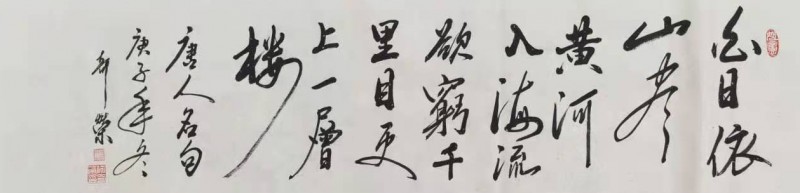 白日依
山尽
黄河
入海流
欲窮千
里目更
上一層
楼
唐人名句
庚子年冬
榮